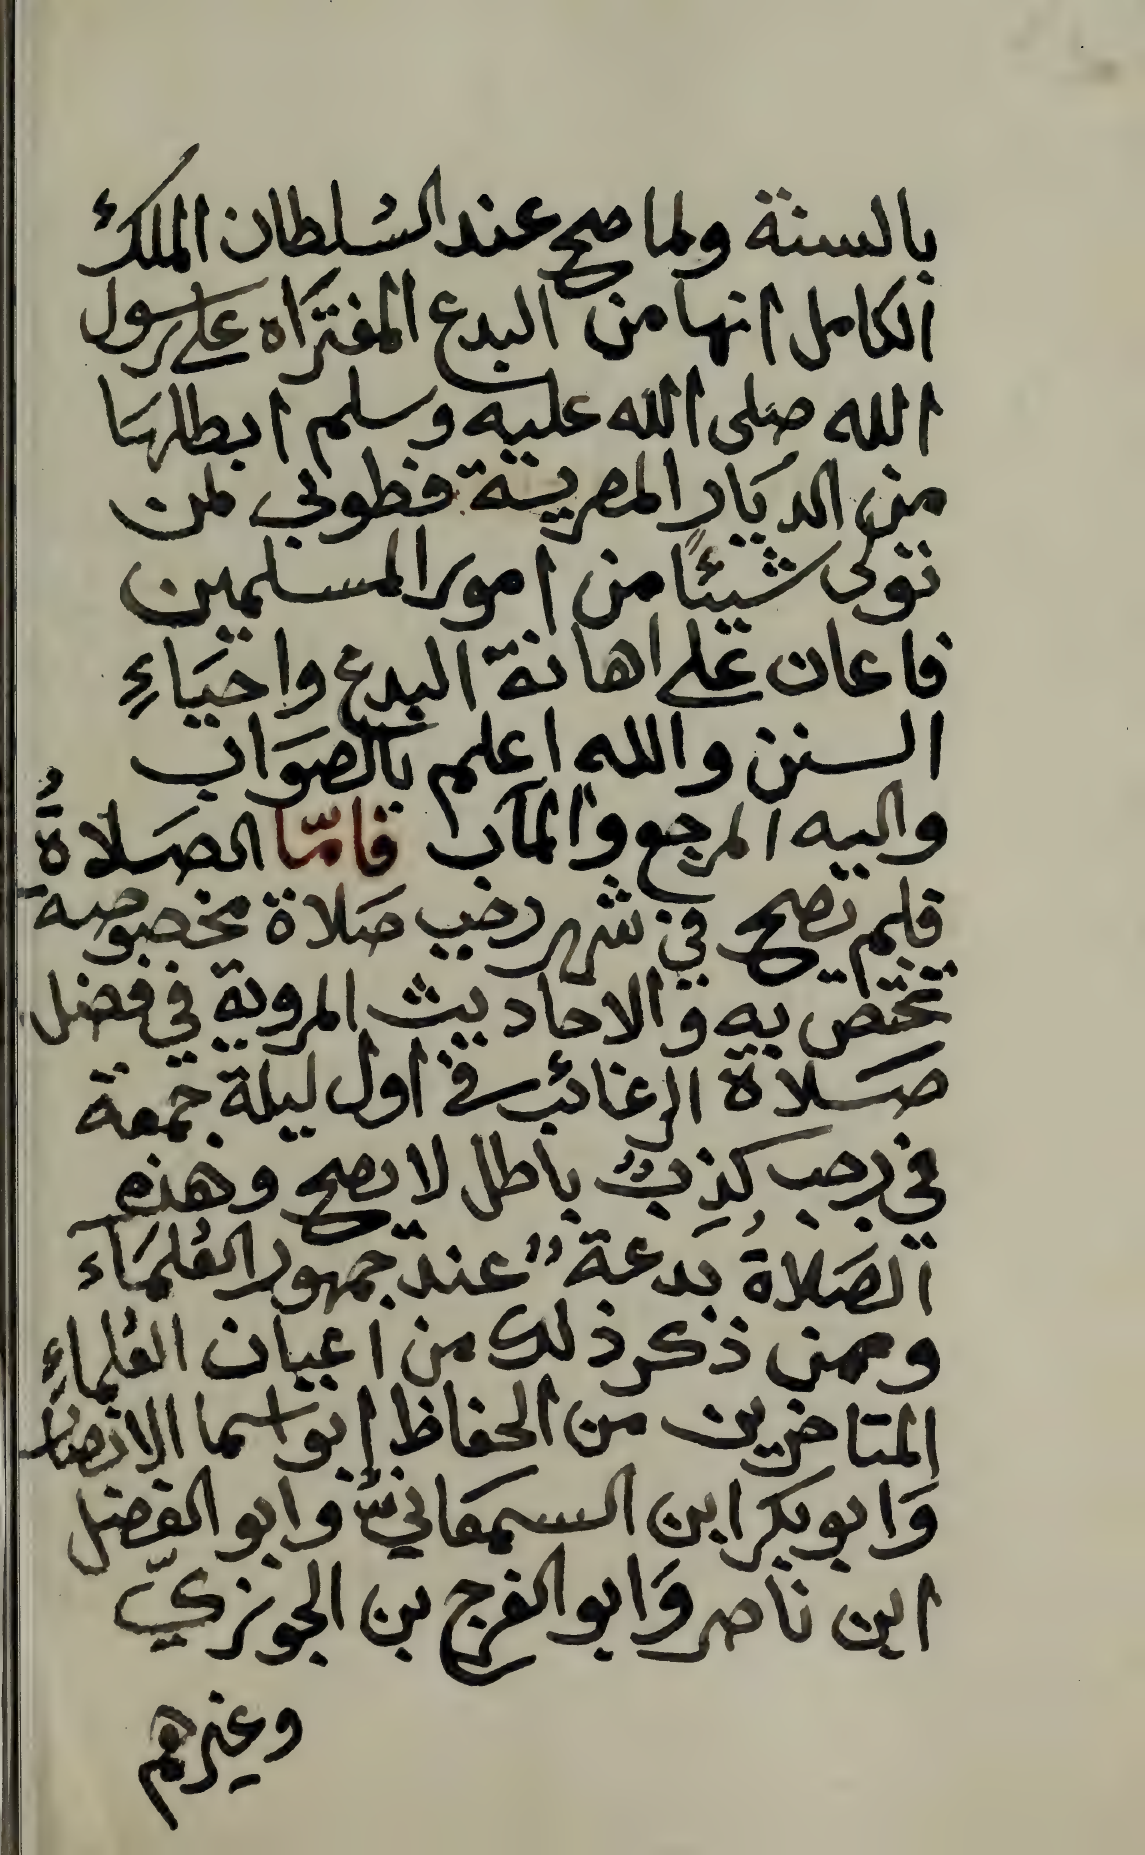 بالسنة ولما صح عند السُلطان الملك
الكامل انها من البدع المفتراه على رسول
الله صلى الله عليه وسلم ابطلهَا
من الديَار المصرية فطوبى لمن
تولى شيئًا من امور المسلمين
فاعان على اهانة البدع واحيَاءِ
السنن والله اعلم بالصوَاب
واليه المرجع والمآب فامّا الصَلاةُ
فلم تصح في شهر رجب صَلاة مخصوصة
تختص به والاحاديث المروية في فضل
صَلاة الرغائب في اول ليلة جمعة
في رجب كَذِبٌ باطل لا يصح وهذه
الصَلاةُ بَدعة عند جمهور العُلمَاء
وممن ذكر ذلك من اعيان العُلماءِ
المتاخرين من الحفاظ ابو اسما الانصار
وَابو بكر ابن السمعَاني وابو الفضل
ابن ناصر وَابو الفرج بن الجوزيّ
وغيرهم